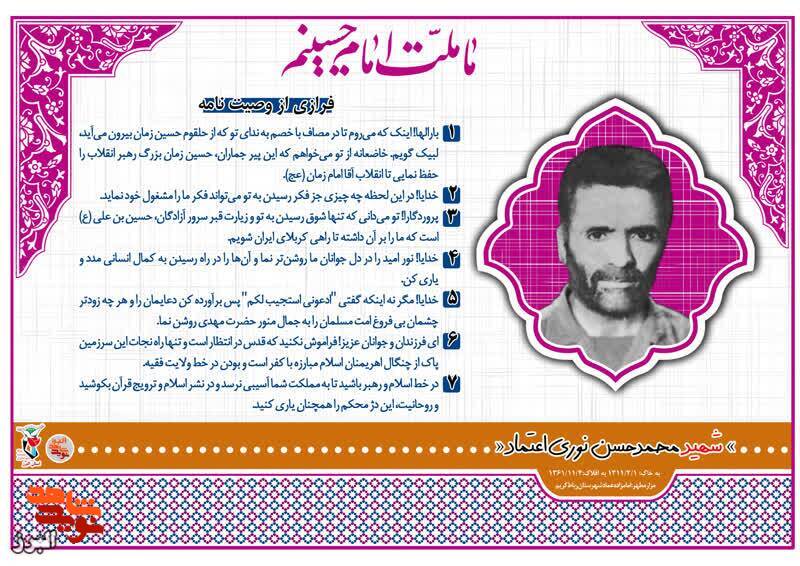 ما ملّت امام حسینیم
فرازی از وصیت نامه
۱ بارالها! اینک که می‌روم تا در مصاف با خصم به ندای تو که از حلقوم حسین زمان بیرون می‌آید،
لبیک گویم. خاضعانه از تو می‌خواهم که این پیر جماران، حسین زمان بزرگ رهبر انقلاب را
حفظ نمایی تا انقلاب آقا امام زمان (عج).
۲ خدایا! در این لحظه چه چیزی جز فکر رسیدن به تو می‌تواند فکر ما را مشغول خود نماید.
۳ پروردگارا! تو می‌دانی که تنها شوق رسیدن به تو و زیارت قبر سرور آزادگان، حسین بن علی (ع)
است که ما را بر آن داشته تا راهی کربلای ایران شویم.
۴ خدایا! نور امید را در دل جوانان ما روشن‌تر نما و آن‌ها را در راه رسیدن به کمال انسانی مدد و
یاری کن.
۵ خدایا! مگر نه اینکه گفتی "ادعونی استجیب لکم" پس برآورده کن دعایمان را و هر چه زودتر
چشمان بی فروغ امت مسلمان را به جمال منور حضرت مهدی روشن نما.
۶ ای فرزندان و جوانان عزیز! فراموش نکنید که قدس در انتظار است و تنها راه نجات این سرزمین
پاک از چنگال اهریمنان اسلام مبارزه با کفر است و بودن در خط ولایت فقیه.
۷ در خط اسلام و رهبر باشید تا به مملکت شما آسیبی نرسد و در نشر اسلام و ترویج قرآن بکوشید
و روحانیت، این دژ محکم را همچنان یاری کنید.
» شهید محمدحسن نوری اعتماد «
به خاک: ۱۳۱۱/۲/۱ به افلاک: ۱۳۶۱/۱۱/۴
مزار مطهر: امامزاده عماد شهرستان رباط کریم
نوید شاهد
البرز